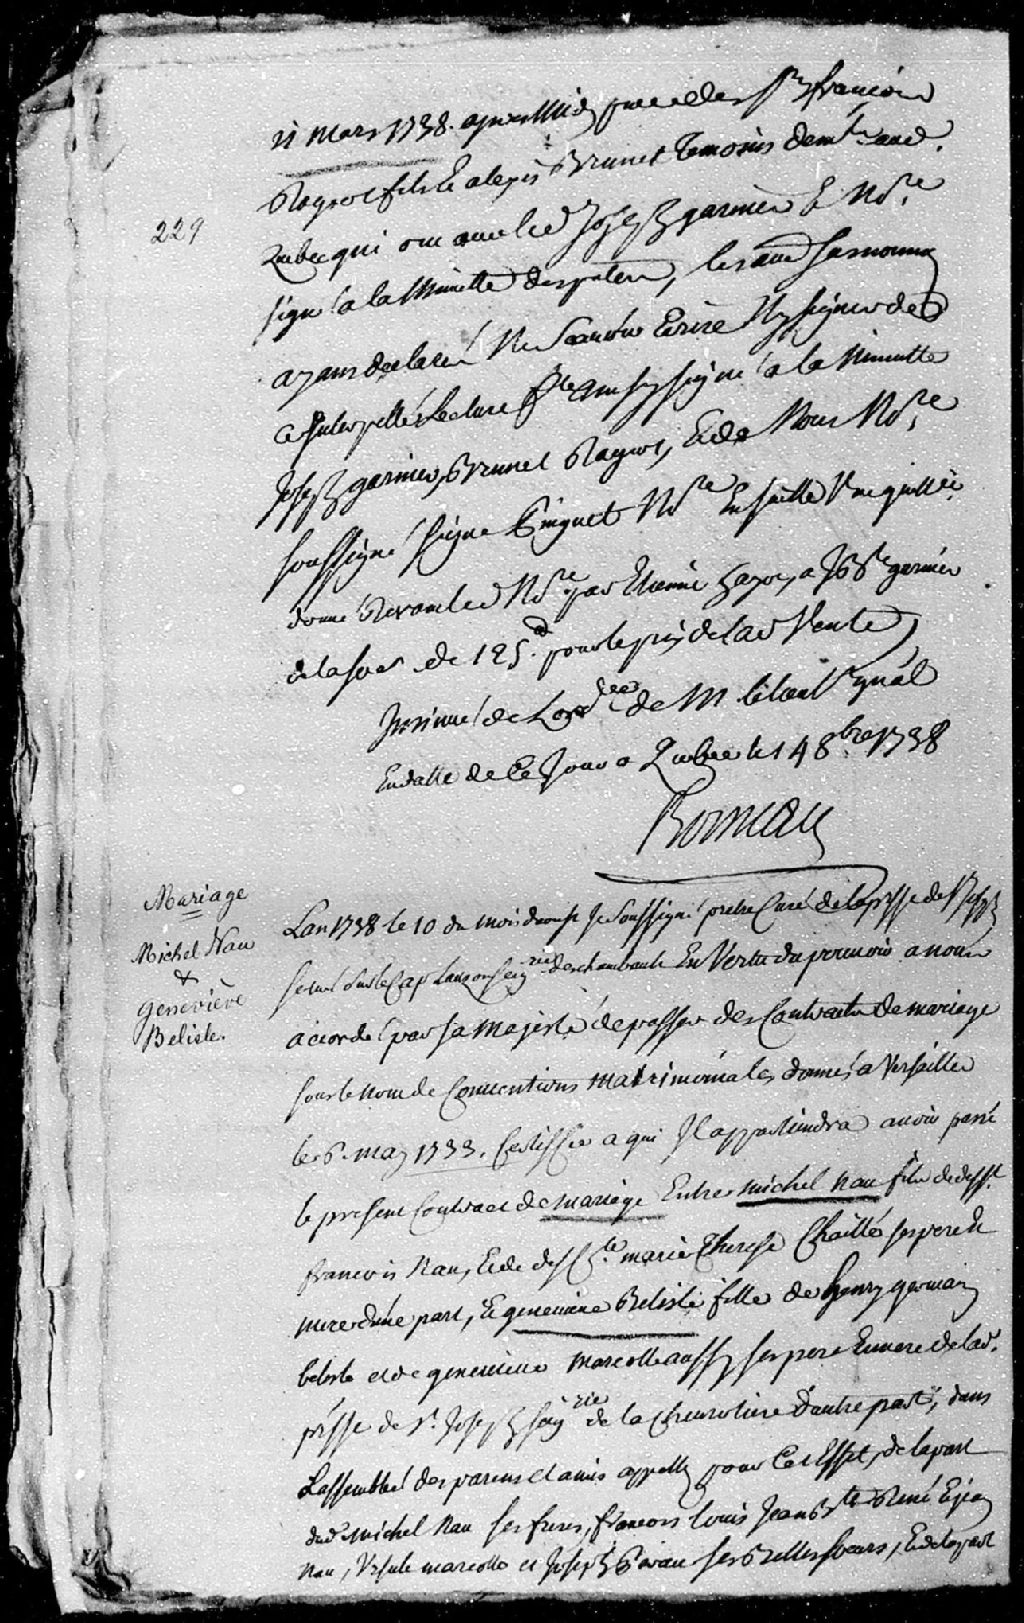 11 mars 1738. apres Midy francois
Rageot fils & alexis Brunet Temoins demts aud.
229
Quebec qui ont avec led Joseph garnier & Nore
signé a la Minutte des presentes, lesd
ayant declaré Ne scavoir Ecrire Ny signer de
ce Interpellés Lecture fte signé a la Minutte
Joseph garnier, Brunet Rageot, Et de Nous Nore
soussigné signé Pinguet Nore Ensuitte Une quittce
donné devant led Nore par Etienne a garnier
de la so de 125 pour le prix de lad Vente
Insinué de Lordce de M le lieut gnal
En datte de ce Jour a Quebec le 14 8bre 1738
Boisseau
Mariage
Michel Nau
&
Geneviève
Belisle.
Lan 1738 le 10 du mois daoust Je soussigné pretre Curé de la psse de St Joseph
sur le Cap Lauzon seigrie deschambault En Vertu du pouvoir a nous
acordé par sa Majesté de passer des Contracts de mariage
sous le nom de Conventions Matrimoniales donné a Versailles
le 6. may 1733. Certiffie a qui Il appartiendra avoir passé
le present Contract de mariage Entre michel Nau fils de deffst
francois Nau, Et de marie Therese Chaillé ses pere &
mere dune part, Et genevieve Belisle fille de henry germain
belisle et de genevieve marcotte aussy ses pere Et mere de lad.
psse de St. Joseph seigrie de la Chevrotiere dautre part, dans
Lassemblée des parens et amis appellés pour Cet Effet, de la part
dud michel Nau ses freres, francois louis Jean Bte René
Nau, Ursule marcotte et Joseph ses Belles soeurs, Et de la part